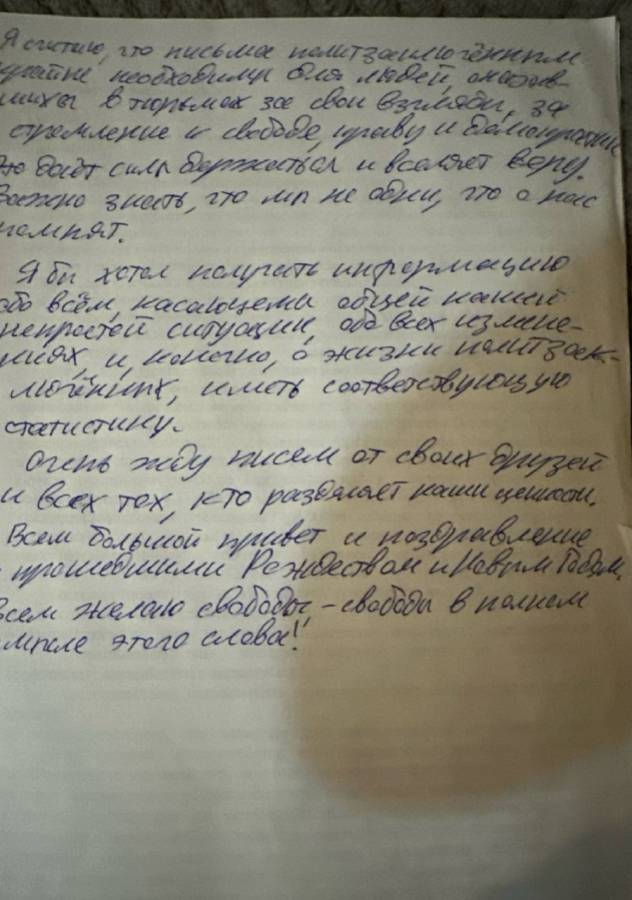 Я считаю, что письма политзаключённым
крайне необходимы для людей, оказав-
шихся в тюрьмах за свои взгляды, за
стремление к свободе, праву и демократии
Это даёт силы держаться и вселяет веру.
Важно знать, что мы не одни, что о нас
помнят.
Я бы хотел получать информацию
обо всём, касающемся общей нашей
непростой ситуации, обо всех измене-
ниях, и, конечно, о жизни политзак-
лючённых, иметь соответствующую
статистику.
Очень жду писем от своих друзей
и всех тех, кто разделяет наши ценности.
Всем большой привет и поздравление
с прошедшими Рождеством и Новым Годом.
Всем желаю свободы, – свободы в полном
смысле этого слова!